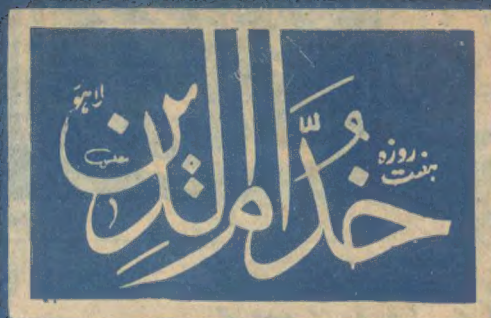 ہفت روزہ
خدام الدین
لاہور